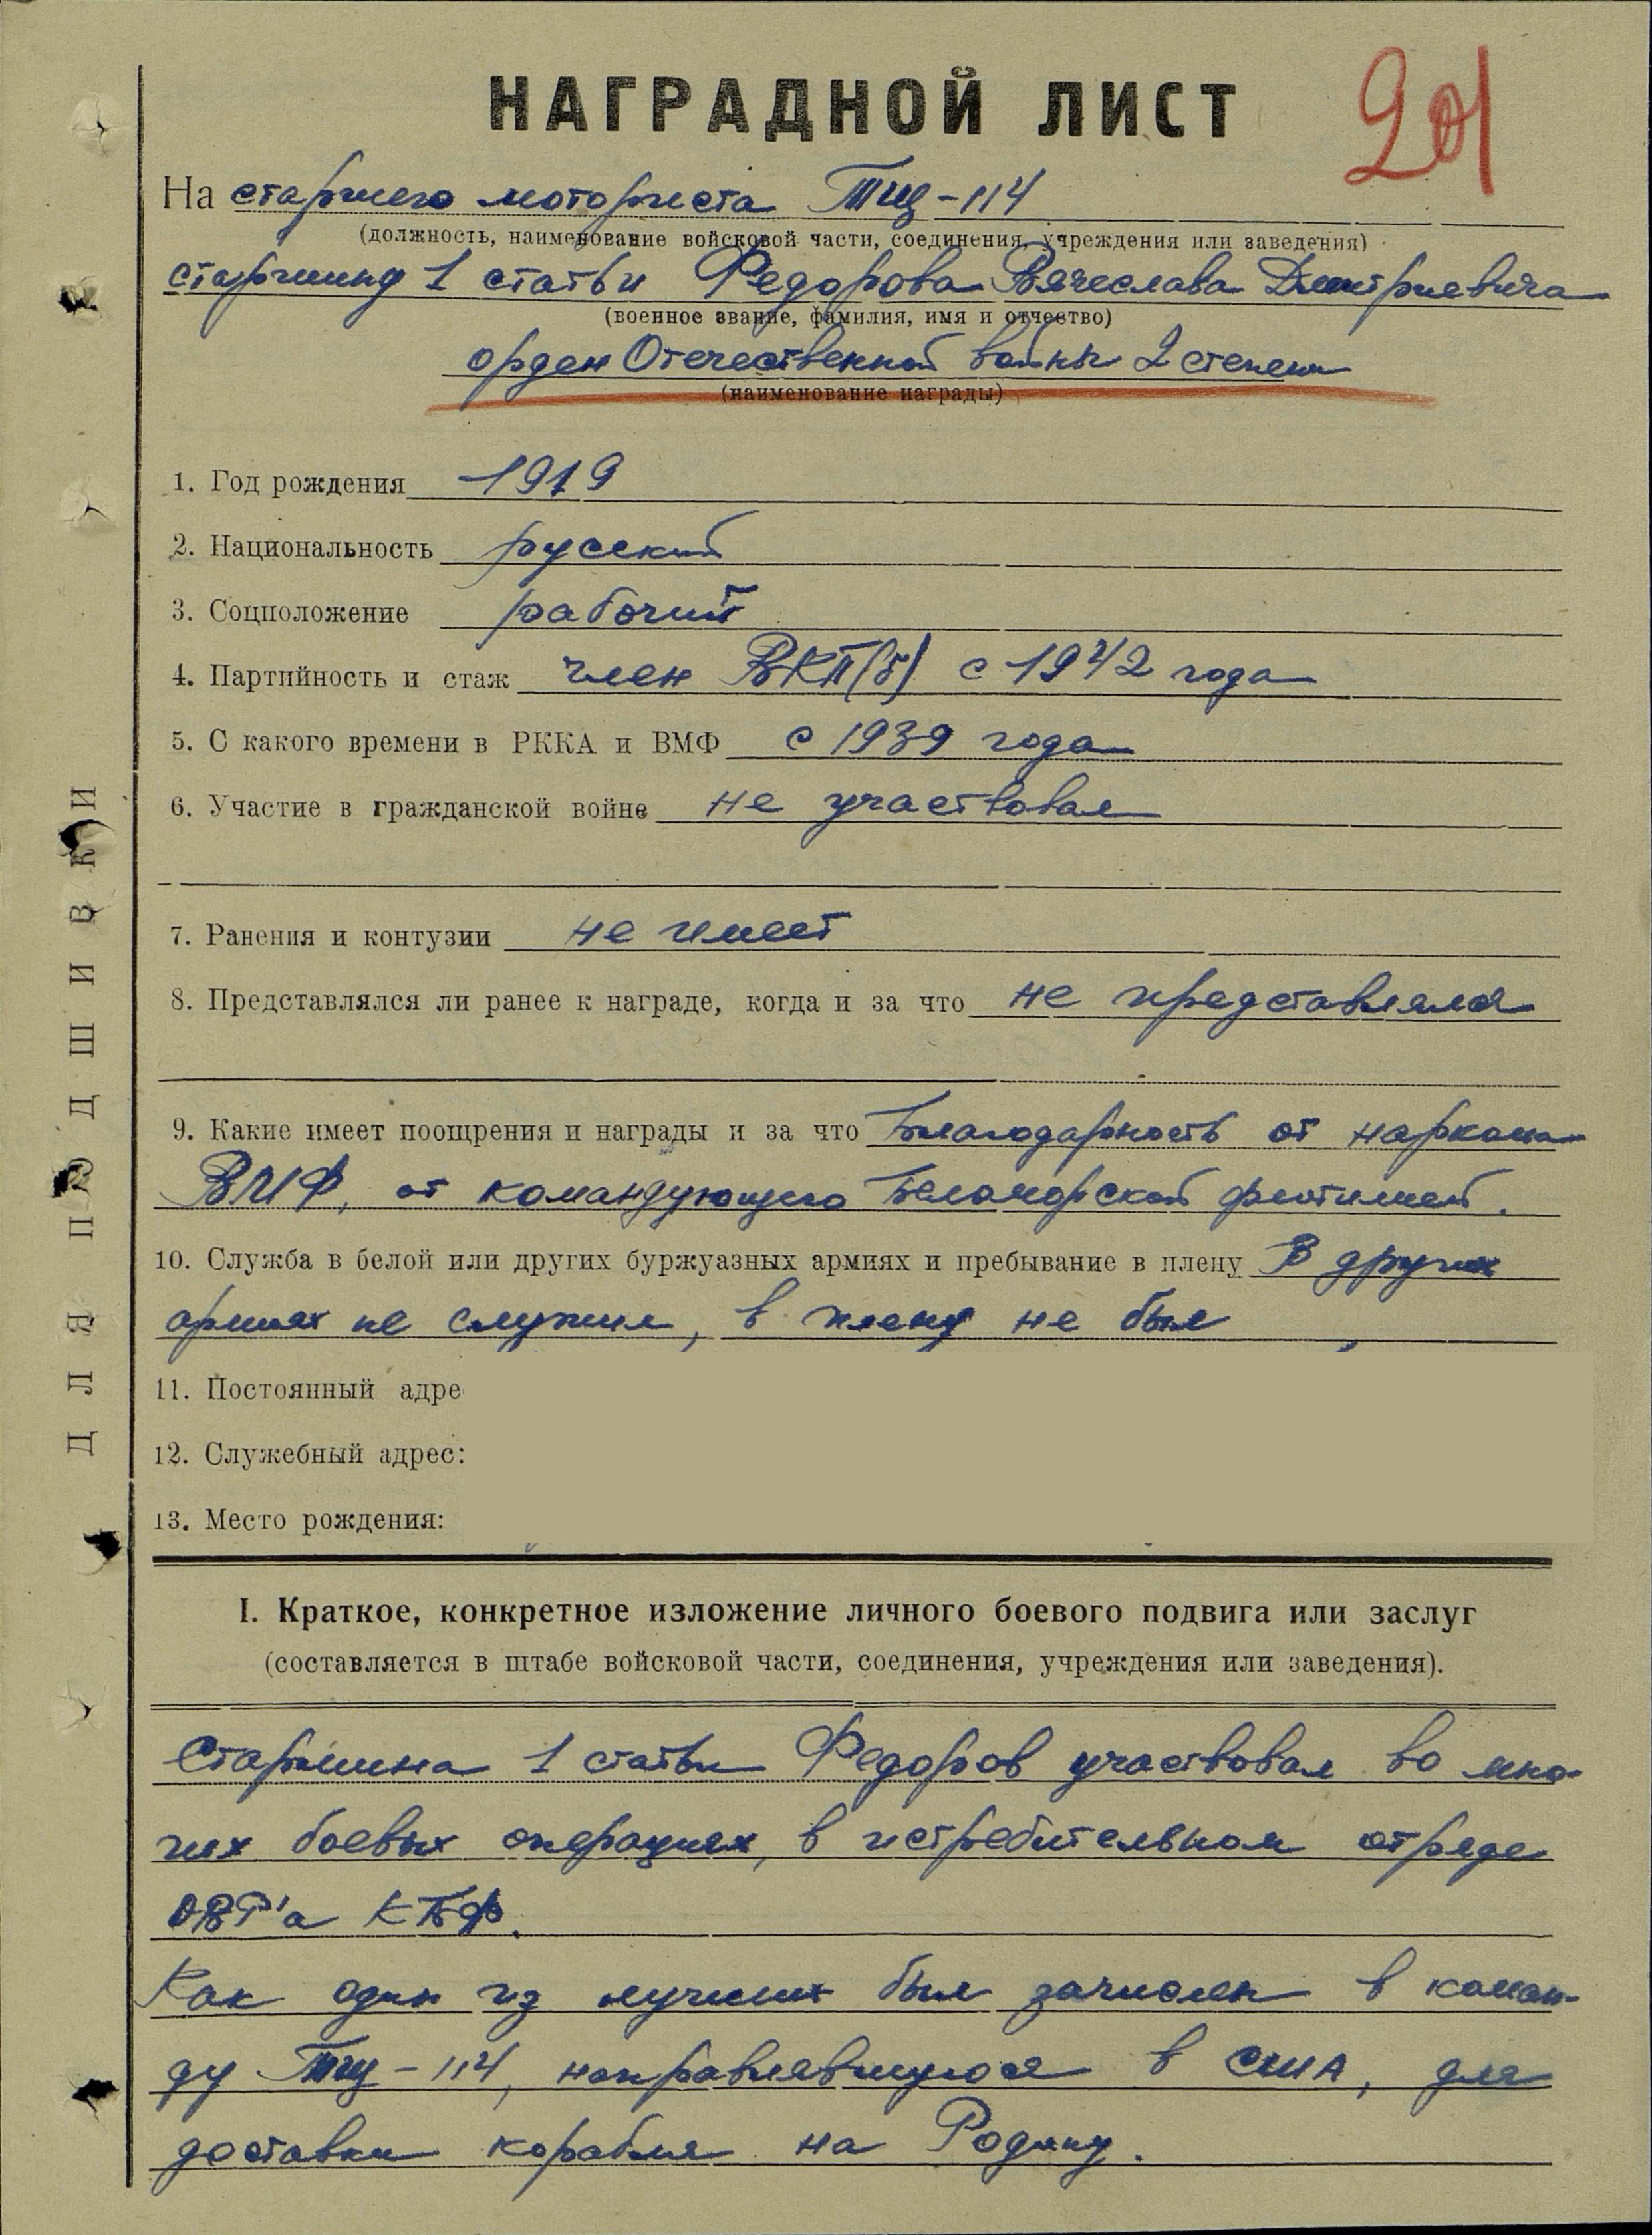 НАГРАДНОЙ ЛИСТ
201
На старшего моториста Тщ-114
(должность, наименование войсковой части, соединения, учреждения или заведения)
старшину 1 статьи Федорова Вячеслава Дмитриевича
(военное звание, фамилия, имя и отчество)
орден Отечественной войны 2 степени
(наименование награды)
1. Год рождения 1919
2. Национальность русский
3. Соцположение рабочий
4. Партийность и стаж член ВКП(б) с 1942 года
5. С какого времени в РККА и ВМФ с 1939 года
6. Участие в гражданской войне не участвовал
7. Ранения и контузии не имеет
8. Представлялся ли ранее к награде, когда и за что не представлялся
9. Какие имеет поощрения и награды и за что Благодарность от наркома
ВМФ, от командующего Беломорской флотилией.
10. Служба в белой или других буржуазных армиях и пребывание в плену В других
армиях не служил, в плену не был
11. Постоянный адре
12. Служебный адрес:
13. Место рождения:
I. Краткое, конкретное изложение личного боевого подвига или заслуг
(составляется в штабе войсковой части, соединения, учреждения или заведения).
Старшина 1 статьи Федоров участвовал во мно-
гих боевых операциях, в истребительном отряде
ОВР'а КБФ.
Как один из лучших был зачислен в коман-
ду Тщ-114, направлявшуюся в США, для
доставки корабля на Родину.
ДЛЯ ПОДШИВКИ